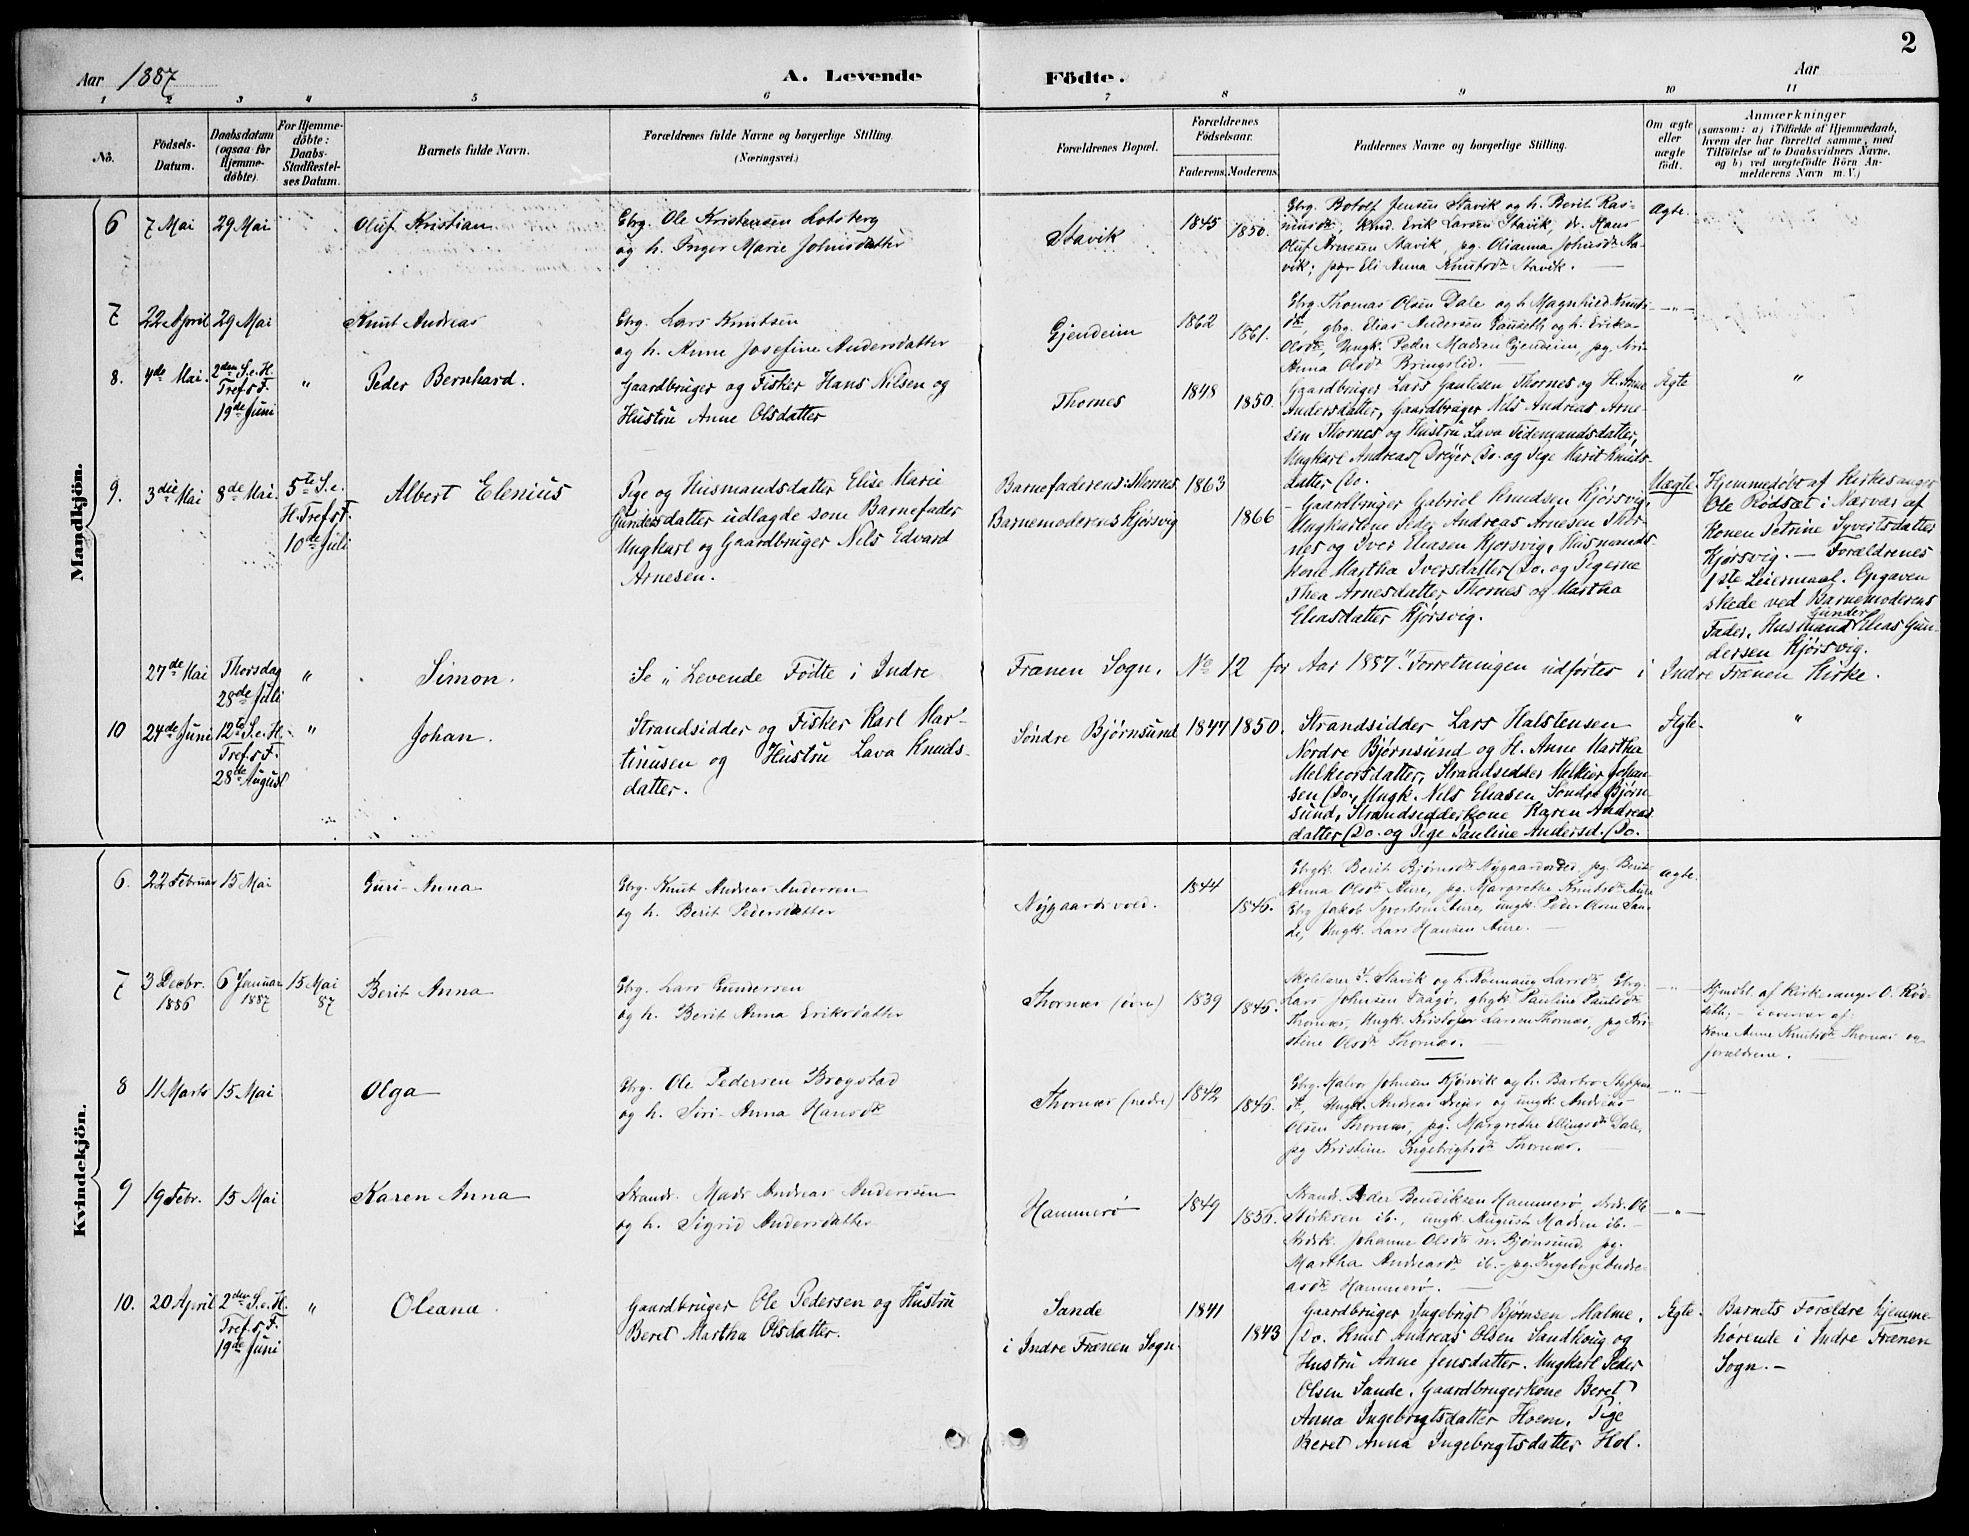 2
Aar 1887
A. Levende Födte.
Aar
1 2 3 4 5 6 7 8 9 10 11
No.
Födsels-Datum.
Daabsdatum (ogsaa for Hjemmedöbte)
For Hjemmedöbte: Daabs-Stadfæstelses Datum.
Barnets fulde Navn.
Forældrenes fulde Navne og borgerlige Stilling.
(Næringsvei.)
Forældrenes Bopæl.
Forældrenes Födselsaar.
Faderens. Moderens.
Faddernes Navne og borgerlige Stilling.
Om ægte eller uægte födt.
Anmærkninger
(saasom: a) i Tilfælde af Hjemmedaab,
hvem der har forrettet samme, med
Tilföielse af to Daabsvidners Navne,
og b) ved uægtefödte Börn An-
melderens Navn m. V.)
Mandkjön.
6 7 Mai 29 Mai
Oluf Kristian
Gbrg. Ole Kristensen Lotsberg
og h. Inger Marie Johnsdatter
Stavik
1845 1850.
Gbrg. Botolf Jensen Stavik og h. Berit Ras-
musdr, Kmd. Erik Larsen Stavik, dr. Hans
Oluf Arnesen Stavik, pg. Olianna Johnsdr Sta-
vik; pige Eli Anna Knutsdr Stavik.
Ægte.
7 22 April 29 Mai
Knut Andreas
Gbrg. Lars Knutsen
og h. Anne Josefine Andersdatter
Gjendeim
1862 1861.
Gbrg. Thomas Olsen Dale og h. Magnhild Knuts-
dr, gbrg. Elias Andersen Gauseth og h. Erika
Olsdr, Ungk. Peder Madsen Gjendeim, pg. Siri
Anna Olsdr Bringslid.
— " —
8. 4de Mai. 2den S. e. H. Tref. s F. 19de Juni "
Peder Bernhard.
Gaardbruger og Fisker Hans Nilsen og
Hustru Anne Olsdatter
Thornes
1848 1850.
Gaardbruger Lars Gautesen Thornes og H. Anne
Andersdatter, Gaardbruger Nils Andreas Arne-
sen Thornes og Hustru Lava Tidemandsdatter,
Ungkarl Andreas Dreyer Do. og Pige Marit Knuts-
datter Do.
Ægte "
9. 3die Mai 8de Mai. 5te S. e. H. Tref. s F. 10de Juli
Albert Elenius
Pige og Husmandsdatter Elise Marie
Gundersdatter udlagde som Barnefader
Ungkarl og Gaardbruger Nils Edvard
Arnesen.
Barnefaderens: Thornes
Barnemoderens Kjørsvig
1863 1866
Gaardbruger Gabriel Knudsen Kjørsvig,
Ungkarlene Peder Andreas Arnesen Thor-
nes og Iver Eliasen Kjørsvig, Husmands-
kone Martha Iversdatter Do. og Pigerne
Thea Arnesdatter Thornes og Martha
Eliasdatter Kjørsvig.
Uægte
Hjemmedøbt af Kirkesanger
Ole Rødsæt i Nærvær af
Konen Petrine Syvertsdatter
Kjørsvig. — Forældrenes
1ste Leiermaal. Opgaven
skede ved Barnemoderens
Fader, Husmand Gunder Elias Gun-
dersen Kjørsvig.
27de Mai Thorsdag 28de Juli "
Simon.
Se „Levende Fødte i Indre Frænen Sogn, No 12 for Aar 1887" Forretningen udførtes i Indre Frænen Kirke.
10 24de Juni 12te S. e. H. Tref. s F. 28de August "
Johan.
Strandsidder og Fisker Karl Mar-
tinusen og Hustru Lava Knuds-
datter.
Søndre Bjørnsund
1847 1850.
Strandsidder Lars Halstensen
Nordre Bjørnsund og H. Anne Martha
Melkeorsdatter, Strandsidder Melkior Johan-
sen Do., Ungk. Nils Eliasen Søndre Bjørn-
sund, Strandsidderkone Karen Andreas
datter Do. og Pige Pauline Andersd. Do.
Ægte. "
Kvindekjön.
6. 22 Februar 15 Mai
Guri Anna
Gbrg. Knut Andreas Andersen
og h. Berit Pedersdatter
Nygaardsvold.
1844 1846.
Gbrgk. Berit Bjørnsdr Nygaardsvold, pg. Berit
Anna Olsdr Aure, pg. Margrethe Knutsdr Aure
Gbrg Jakob Syvertsen Aure, ungk. Peder Olsen San-
de, Ungk. Lars Hansen Aure.
Ægte.
7 3 Decbr. 1886 6 Januar 1887 15 Mai 87
Berit Anna
Gbrg. Lars Gundersen
og h. Berit Anna Eriksdatter
Thornæs (övre)
1839 1846.
Skolelærer I. Stavik og h. Rønnaug Larsdr, Gbrg.
Lars Johnsen Faagø, gbrgk. Pauline Paulsdr
Thornæs, Ungk. Kristofer Larsen Thornæs, pg Kri-
stine Olsdr Thornæs.
— " —
Hjmdbt. af Kirkesanger O. Rød-
seth; — i overvær af:
Kone Anne Knutsdr Thornæs og
forældrene.
8 11 Marts 15 Mai
Olga
Gbrg. Ole Pedersen Brogstad
og h. Siri Anna Hansdr
Thornæs (nedre)
1842 1846.
Gbrg. Halvor Johnsen Kjørsvik og h. Barbro Steffens-
dr, Ungk. Andreas Dreyer og ungk. Andreas
Olsen Thornæs, pg. Margrethe Ellingsdr Dale,
pg Kristine Ingebrigtsdr Thornæs.
— " —
9 19 Febr. 15 Mai
Karen Anna
Strands. Mads Andreas Andersen
og h. Sigrid Andersdatter
Hammerø
1849 1856.
Strands. Peder Bendiksen Hammerø, strds. Ole
ib., ungk. August Madsen ib.
Strdsk. Johanne Olsdr n. Bjørnsund, pg.
Martha Andreasdr ib. — pg. Ingeborg Andre-
asdr Hammerø.
— " —
10. 20 April 2den S. e. H. Tref. s F. 19de Juni "
Oleana.
Gaardbruger Ole Pedersen og Hustru
Beret Martha Olsdatter.
Sande
i Indre Frænen Sogn.
1841 1843
Gaardbruger Ingebrigt Bjørnsen Malme.
Do. Knut Andreas Olsen Sandhoug og
Hustru Anne Jensdatter. Ungkarl Peder
Olsen Sande. Gaardbrugerkone Beret
Anna Ingebrigtsdatter Hoem. Pige
Beret Anna Ingebrigtsdatter Hol.
Ægte.
Barnets Forældre hjemme-
hørende i Indre Frænen
Sogn. —